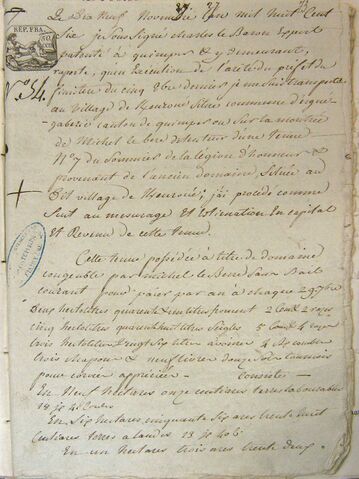 37. 37
Le Dix Neuf Novembre l'an mil huit Cent
Six je soussigné charles le Baron Expert
patenté à quimper & y demeurant,
raporte, qu'en Execution de l'arrêté du préfet du
finistère du cinq 8bre dernier je me suis transporté
au village de Kerourou Située commune d'ergué
gaberic canton de quimper où Sur la montrée
de Michel le bene detenteur d'une Tenue
N° 7 du Sommier de la légion d'honneur
provenant de l'ancien domaine, Située au
Dit village de j'ai procédé comme
Suit au mesurage et Estimation En capital
Et Revenu de cette tenue
Cette tenue possédée à titre de domaine
congeable par michel le Bene Sans Bail
courant pour païer par an à chaque 29 7bre
Deux hectolitres quarante froment
cinq hectolitres quarante huit litres Seigle
trois hectolitres Vingt Six litres avoine
trois chapons & neuf livres douze Sols Tournois
pour corvée appréciée. Consiste
En Neuf hectares onze centiares terres labourables
En Six hectares, cinquante Six ares trente huit
Centiares terres a landes
En un hectares trois ares trente deux
REP. FRA.
N° 34.